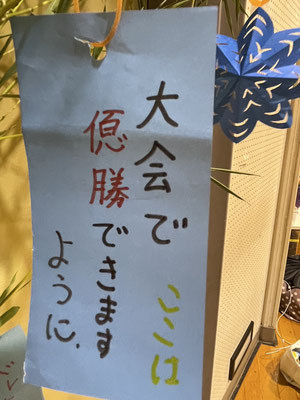 大会で
ここは
優勝できます
ように.